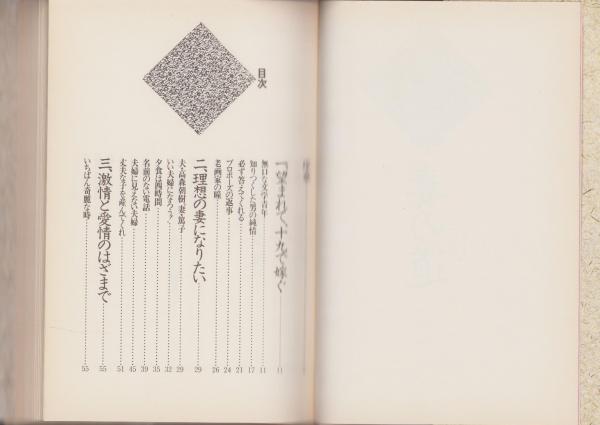 目次
一、望まれて、十九で嫁ぐ 11
無口な文学青年 11
知りつくした男の純情 17
必ず答えてくれる 21
プロポーズの返事 24
老画家の瞳 26
二、理想の妻になりたい 29
夫・高森朝樹、妻・篤子 29
いい夫婦になろうぞ 32
夕食は四時間 35
名前のない電話 39
夫婦に見えない夫婦 45
丈夫な子を産んでくれ 51
三、激情と愛情のはざまで 55
いちばん奇麗な時 55